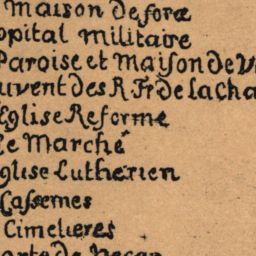 Maison de force
opital militaire
Paroise et Maison de V
uvent des R Fr de la Cha
Eglise Reforme
Le Marché
glise Lutherien
Cassernes
Cimetieres
orte de Pecan